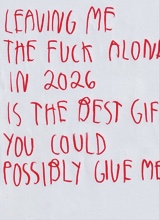 LEAVING ME
THE FUCK ALONE
IN 2026
IS THE BEST GIF
YOU COULD
POSSIBLY GIVE ME